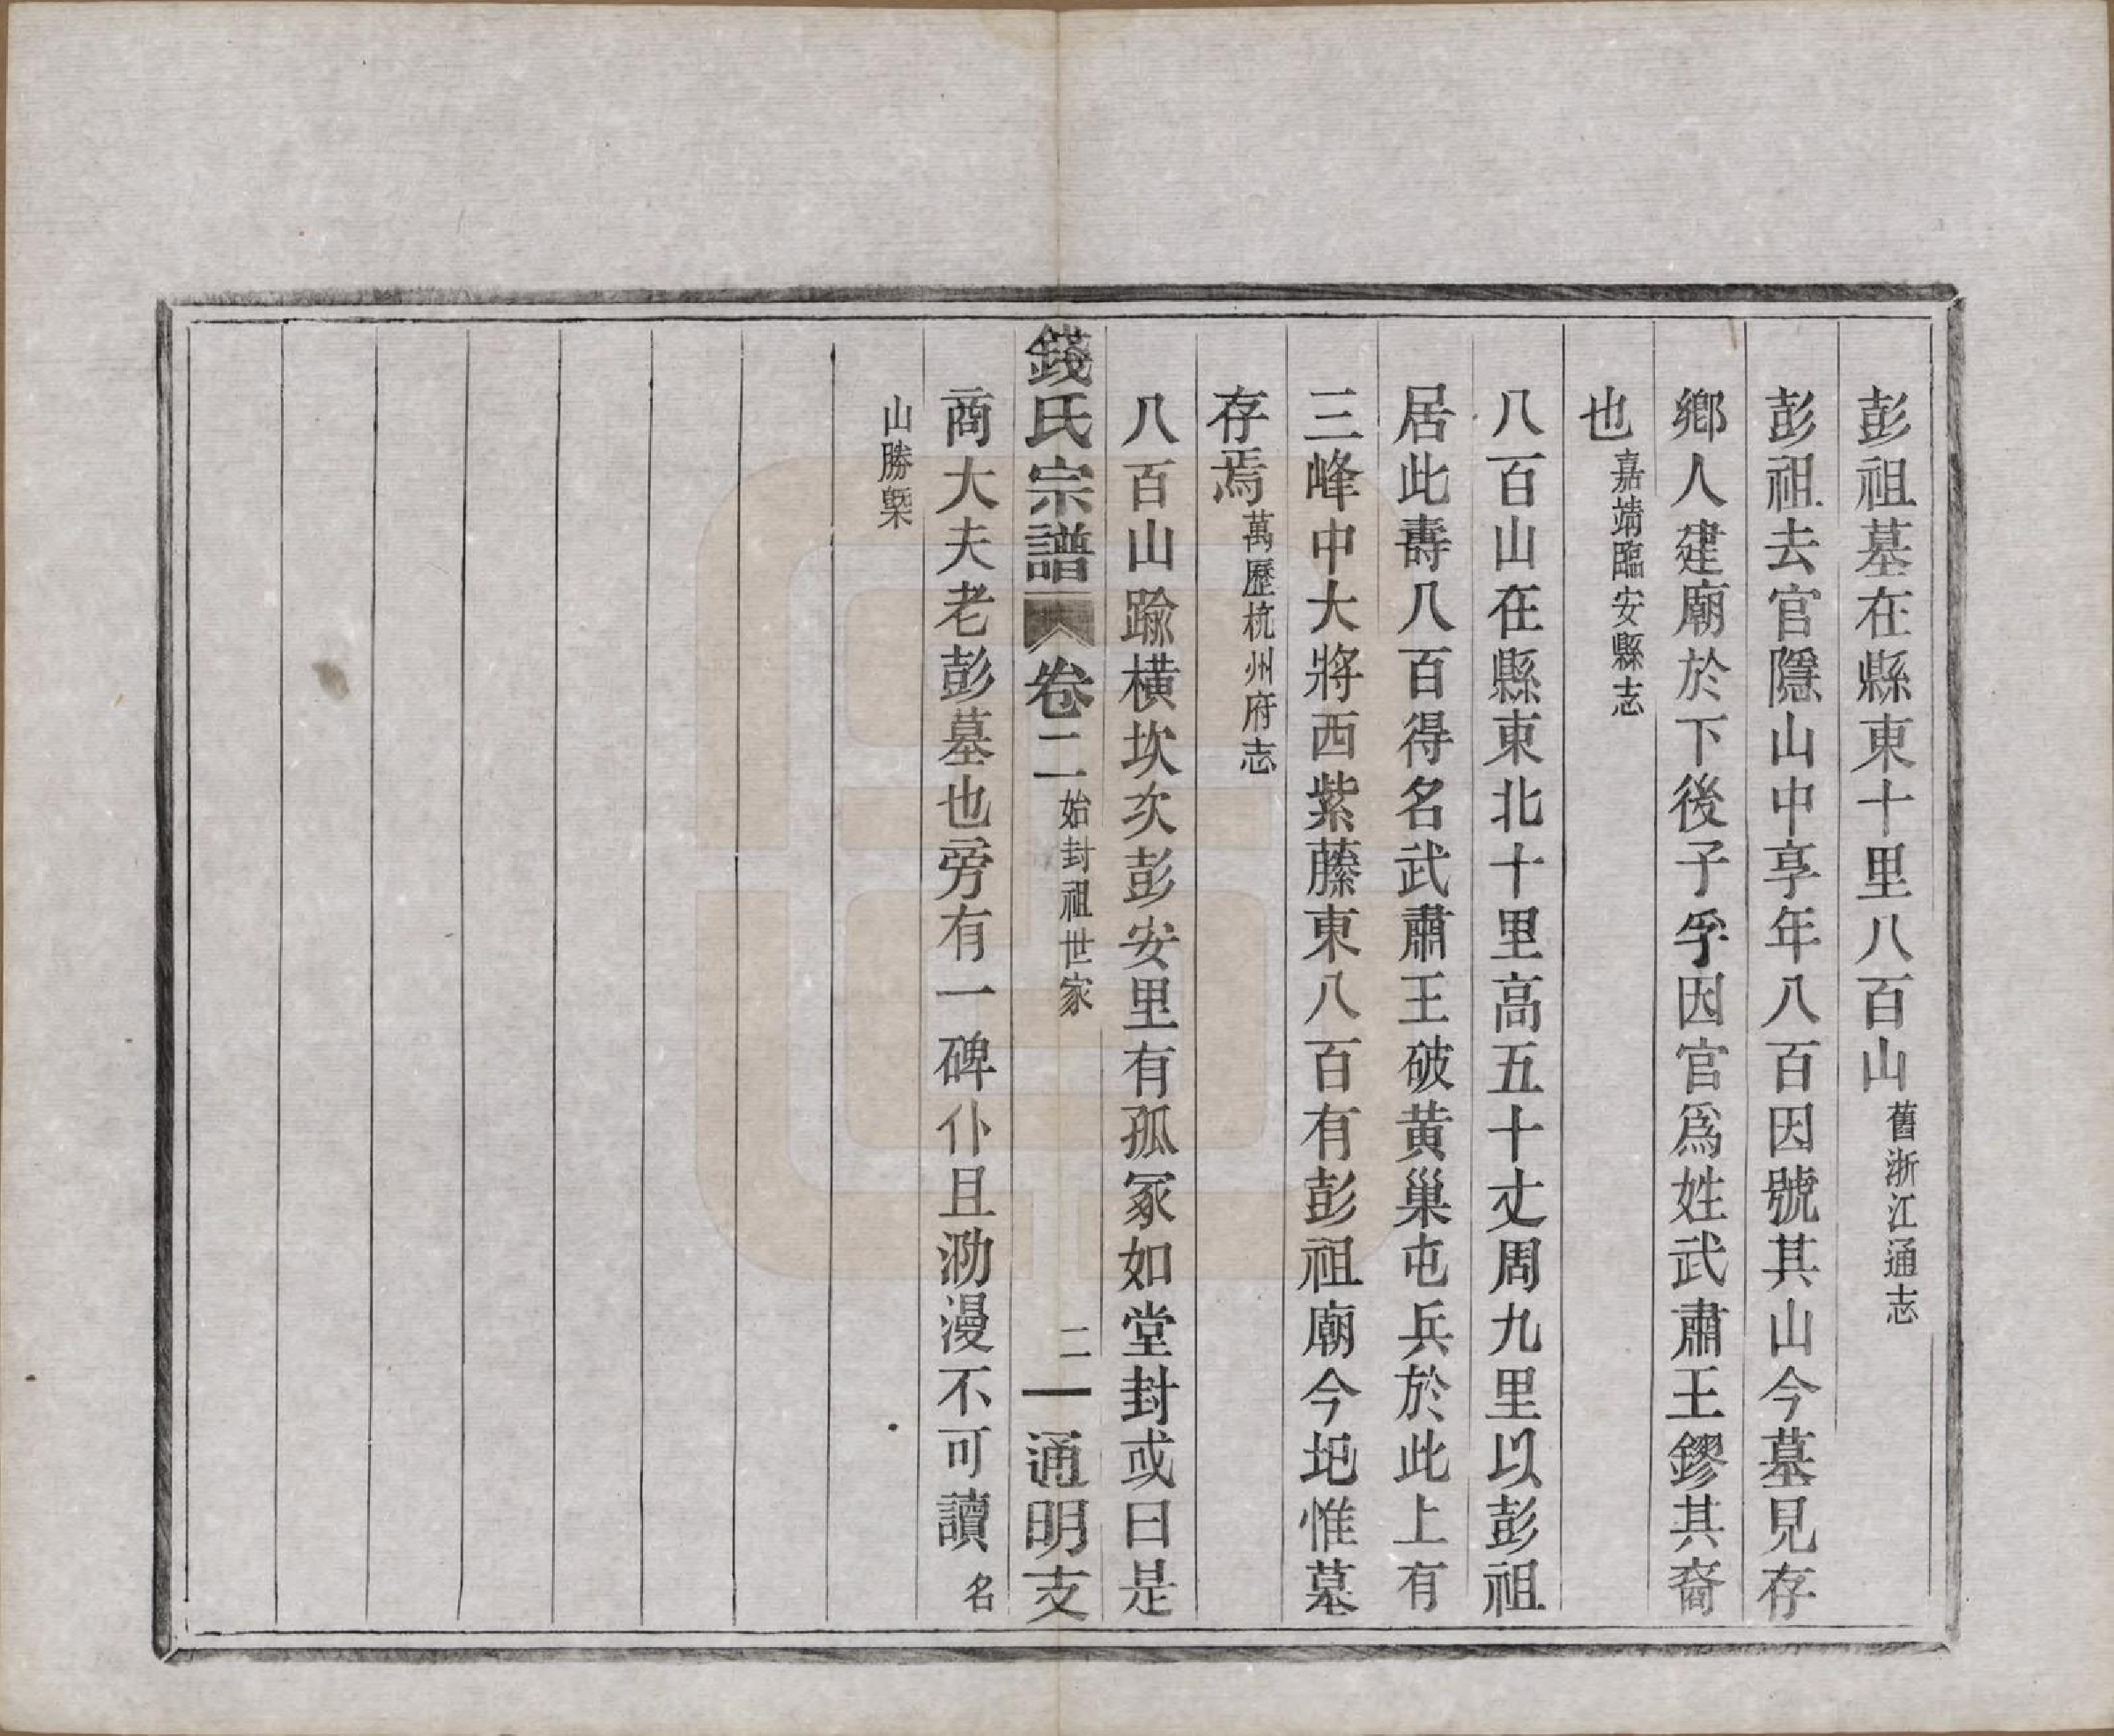 彭祖墓在縣東十里八百山舊浙江通志
彭祖去官隱山中享年八百因號其山今墓見存
鄉人建廟於下後子孚因官爲姓武肅王鏐其裔
也嘉靖臨安縣志
八百山在縣東北十里高五十丈周九里以彭祖
居此壽八百得名武肅王破黃巢屯兵於此上有
三峰中大將西紫藤東八百有彭祖廟今圮惟墓
存焉萬歷杭州府志
八百山踰橫坎次彭安里有孤冢如堂封或曰是
錢氏宗譜 卷二始封祖世家 二 通明支
商大夫老彭墓也旁有一碑仆且泐漫不可讀名
山勝槩